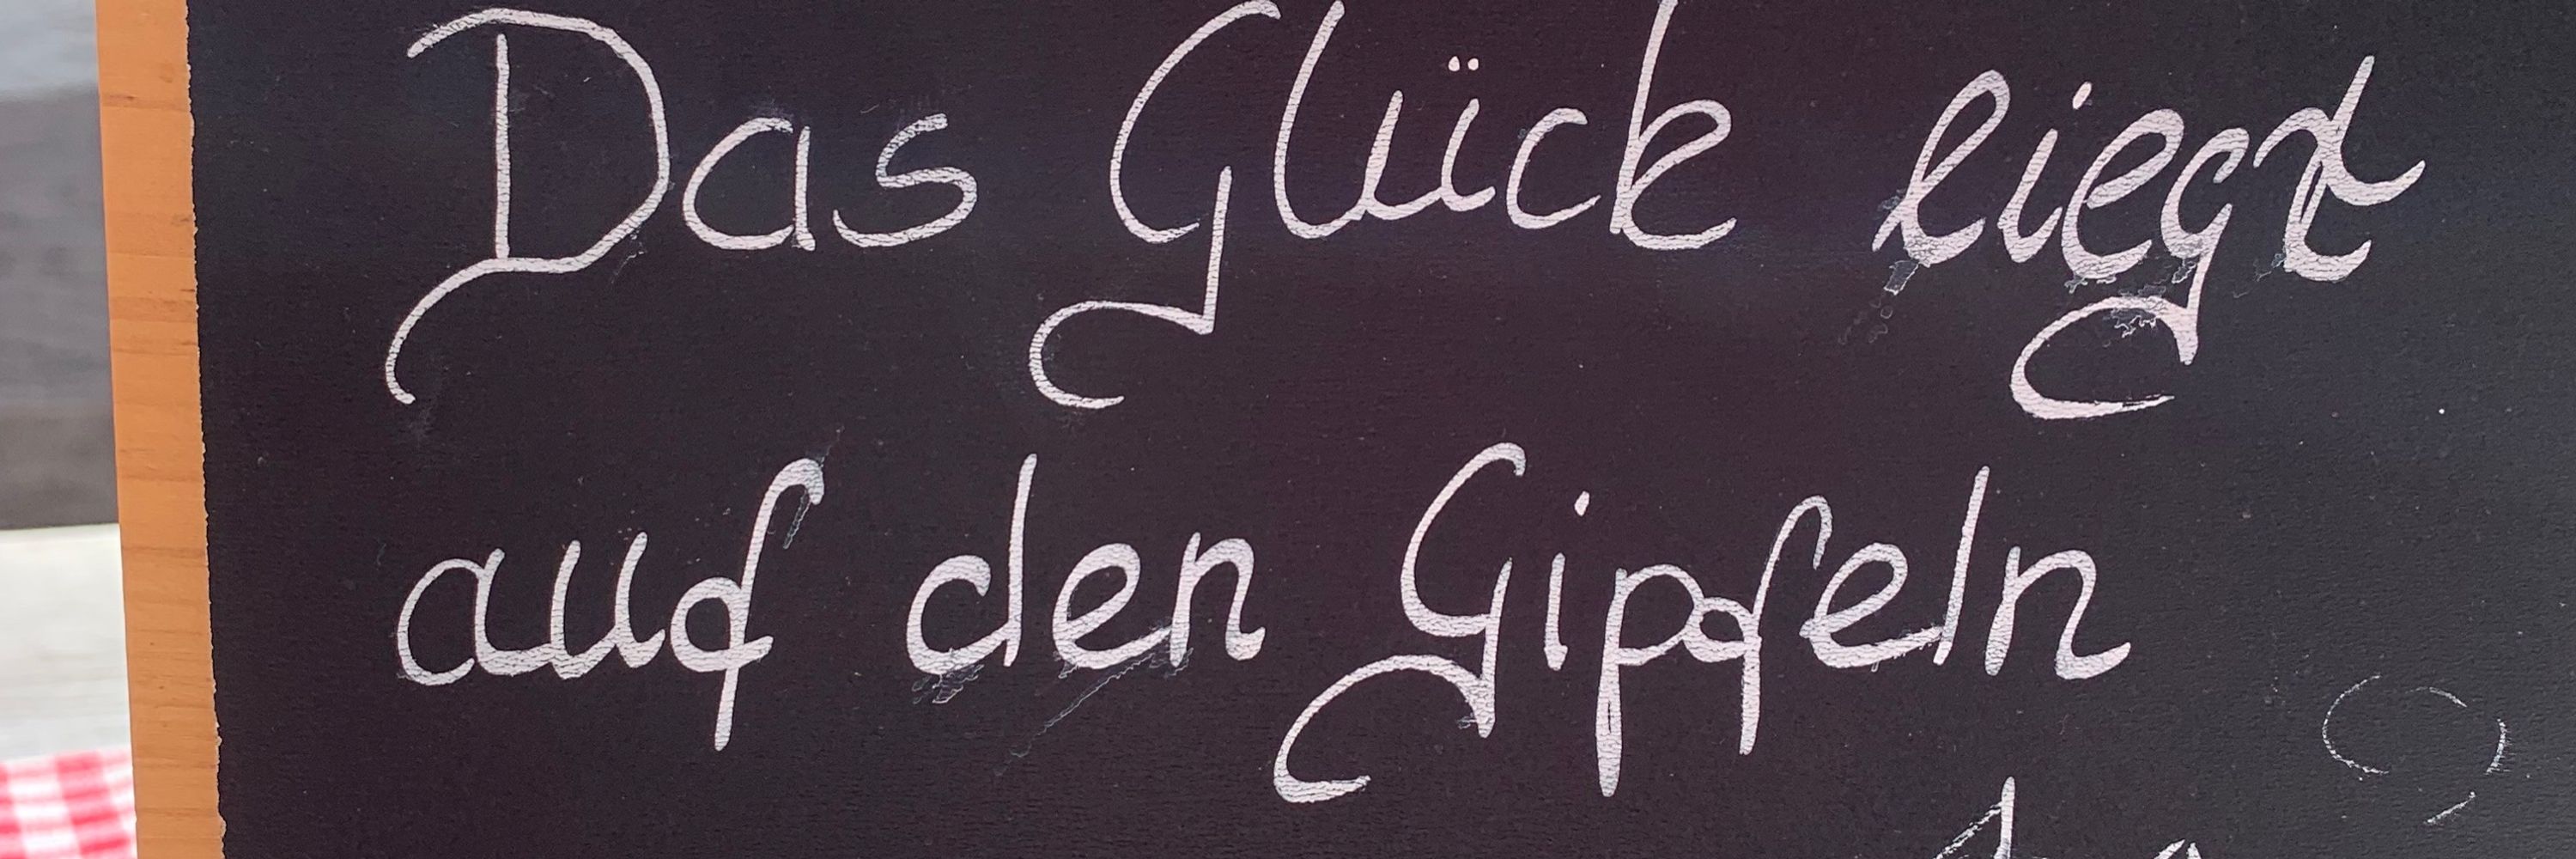 Das Glück liegt
auf den Gipfeln